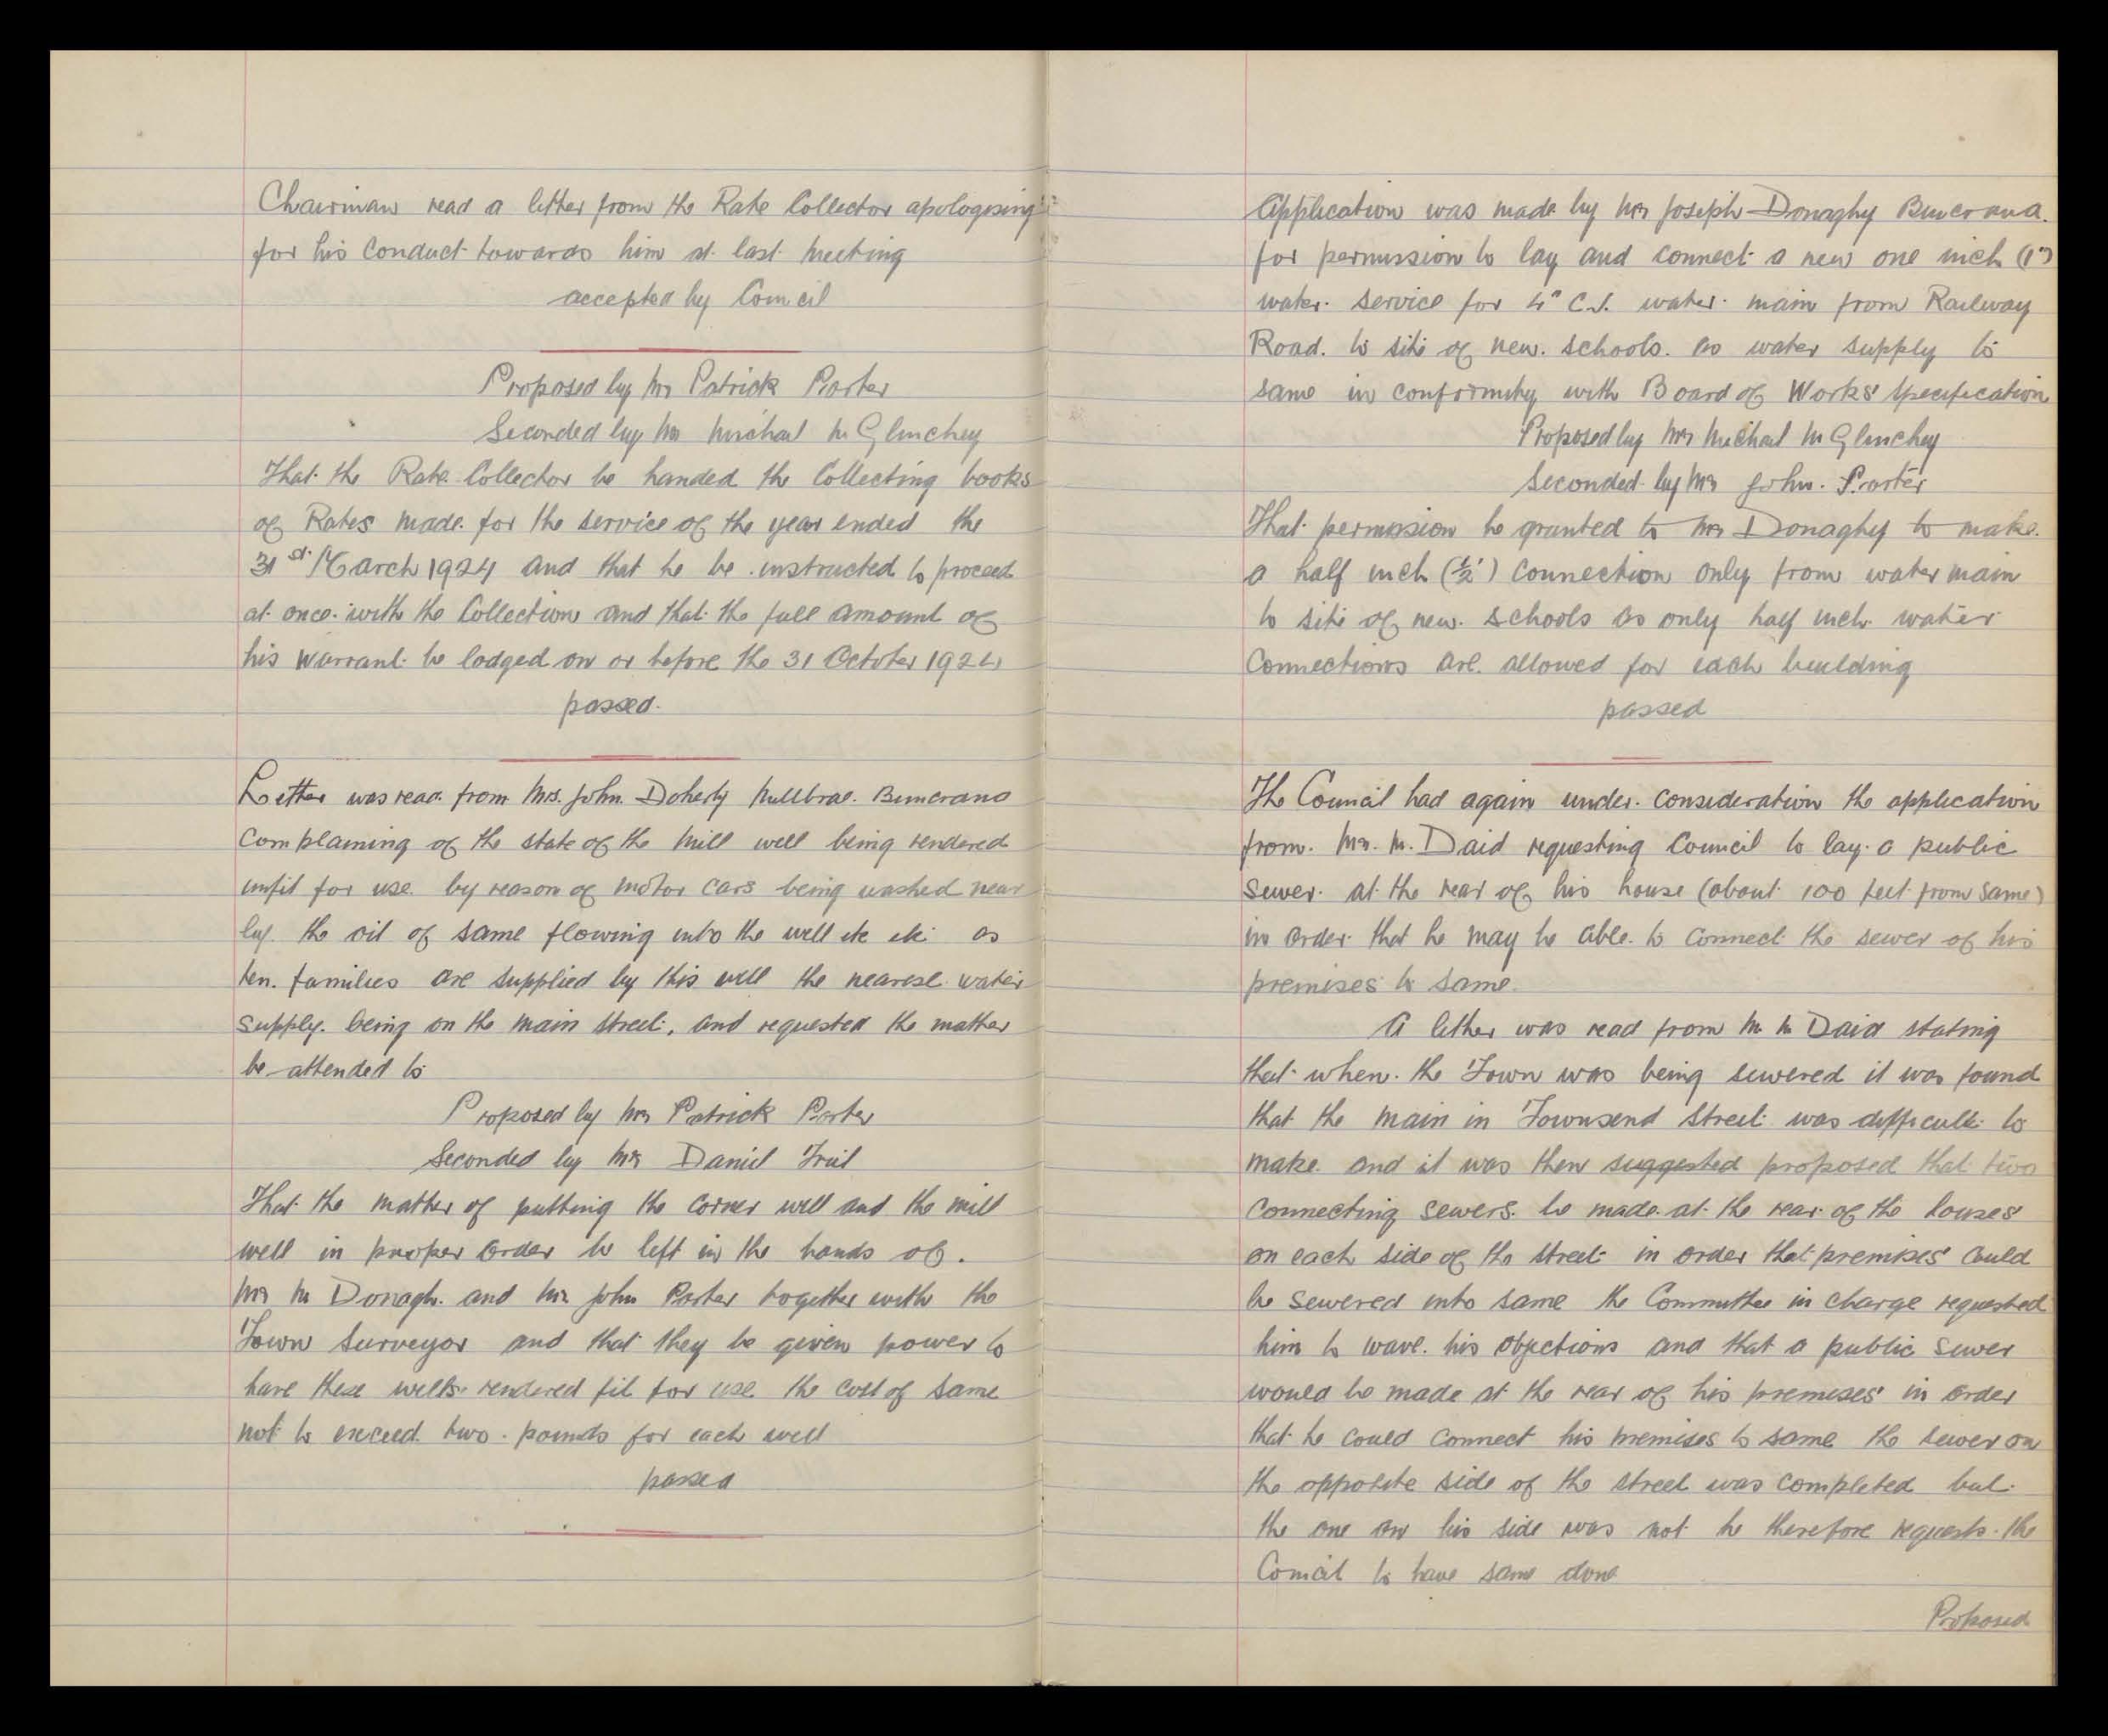 Chairman read a letter from the Rate Collector apologising
for his conduct towards him at last meeting
accepted by Council
Proposed by Mr Patrick Porter
Seconded by Mr Michael McGlinchey
That the Rate Collector be handed the Collecting books
of Rates made for the service of the year ended the
31st March 1924 and that he be instructed to proceed
at once with the Collection and that the full amount of
his warrant be lodged on or before the 31 October 1924
passed.
Letter was read from Mrs. John Doherty Millbrae. Buncrana
complaining of the state of the Mill well being rendered
unfit for use by reason of motor cars being washed near
by. the oil of same flowing into the well etc etc as
ten families are supplied by this well the nearest water
supply being on the main street, and requested the matter
be attended to
Proposed by Mr Patrick Porter
Seconded by Mr Daniel Friel
That the matter of putting the corner well and the mill
well in proper order be left in the hands of.
Mr McDonagh and Mr John Porter together with the
Town Surveyor and that they be given power to
have these wells rendered fit for use the cost of same
not to exceed two pounds for each well
passed
Application was made by Mr Joseph Donaghy Buncrana.
for permission to lay and connect a new one inch (1")
water service for 4" C.I. water main from Railway
Road. to site of new schools. as water supply to
same in conformity with Board of Works' specification
Proposed by Mr Michael McGlinchey
Seconded by Mr John Porter
That permission be granted to Mr Donaghy to make
a half inch (½") connection only from water main
to site of new schools as only half inch water
connections are allowed for each building
passed
The Council had again under consideration the application
from Mr. McDaid requesting Council to lay a public
sewer at the rear of his house (about 100 feet from same)
in order that he may be able to connect the sewer of his
premises to same.
A letter was read from Mr McDaid stating
that when the Town was being sewered it was found
that the main in Townsend Street was difficult to
make and it was then suggested proposed that two
connecting sewers be made at the rear of the houses
on each side of the street in order that premises could
be sewered into same the Committee in charge requested
him to wave his objections and that a public sewer
would be made at the rear of his premises in order
that he could connect his premises to same the sewer on
the opposite side of the street was completed but
the one on his side was not he therefore requests the
Council to have same done
Proposed